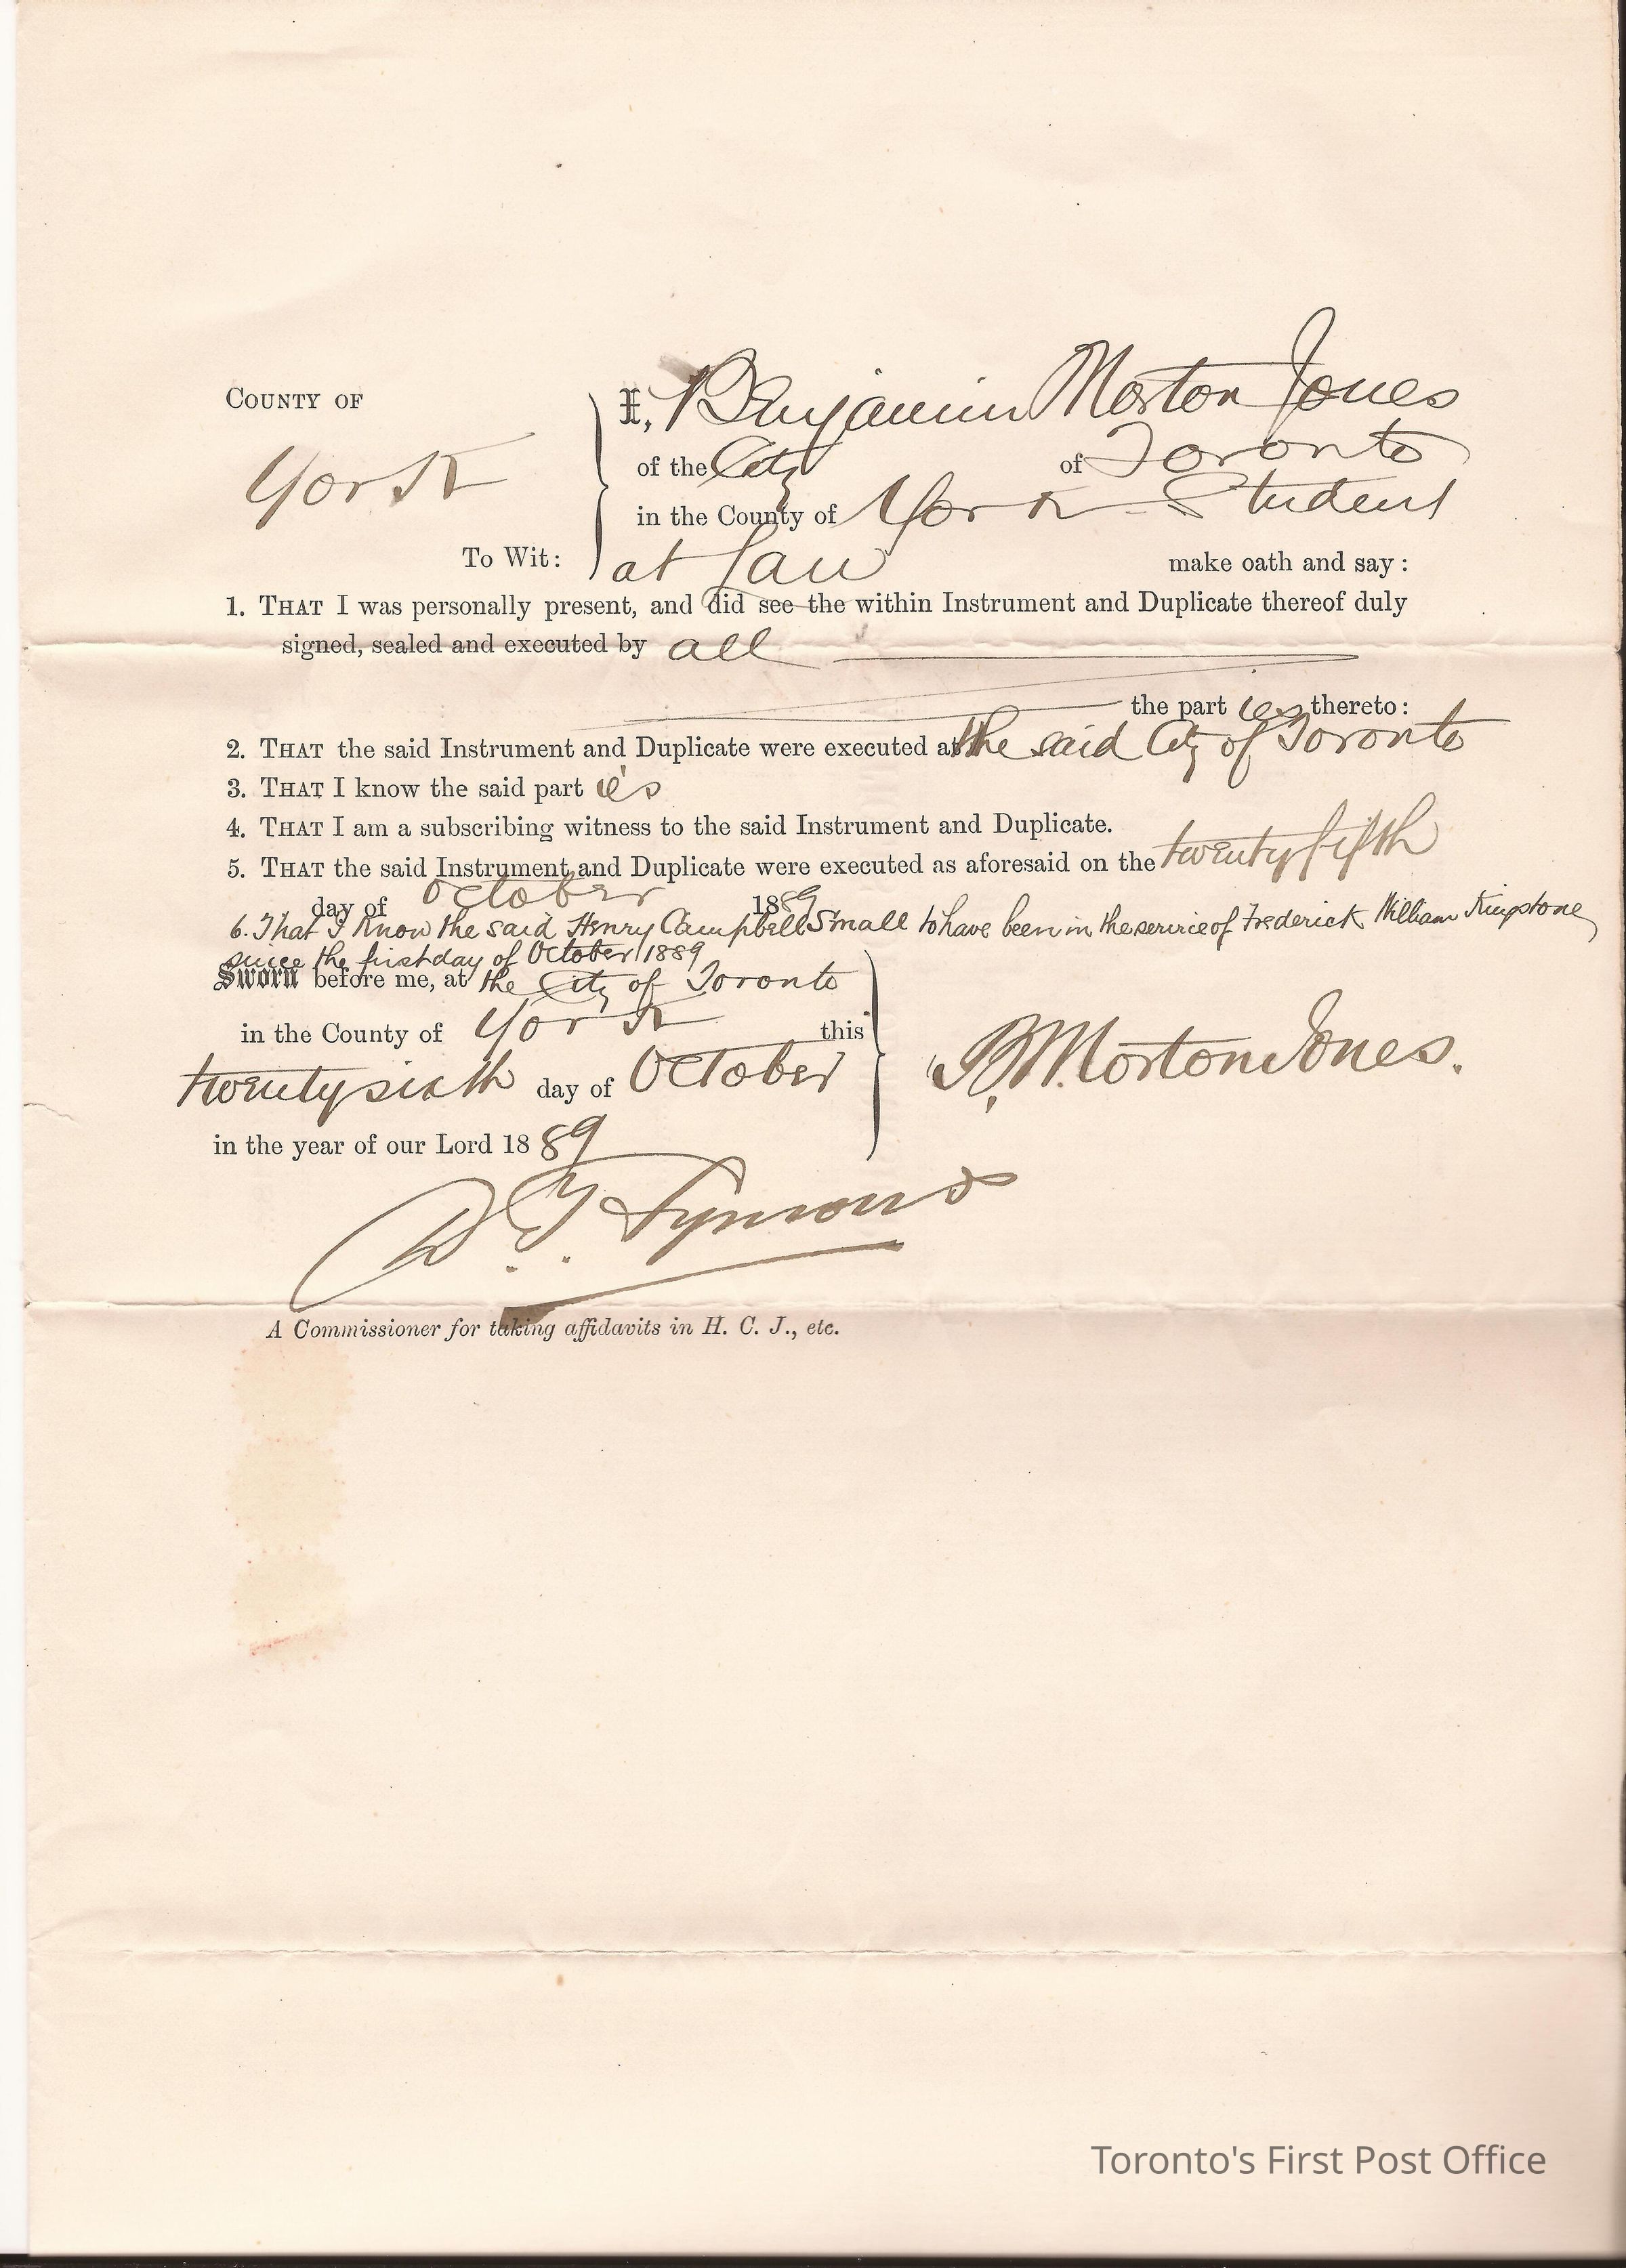 COUNTY OF
York
To Wit:
I, Benjamin Morton Jones
of the City of Toronto
in the County of York Student
at Law make oath and say:
1. THAT I was personally present, and did see the within Instrument and Duplicate thereof duly
signed, sealed and executed by all
the part ies thereto:
2. THAT the said Instrument and Duplicate were executed at the said City of Toronto
3. THAT I know the said part ies
4. THAT I am a subscribing witness to the said Instrument and Duplicate.
5. THAT the said Instrument and Duplicate were executed as aforesaid on the twenty fifth
day of October 1889
6. That I know the said Henry Campbell Small to have been in the service of Frederick William Kingstone
since the first day of October 1889
Sworn before me, at the City of Toronto
in the County of York this
twenty sixth day of October
in the year of our Lord 1889
B. Morton Jones.
D. T. Symons
A Commissioner for taking affidavits in H. C. J., etc.
Toronto's First Post Office